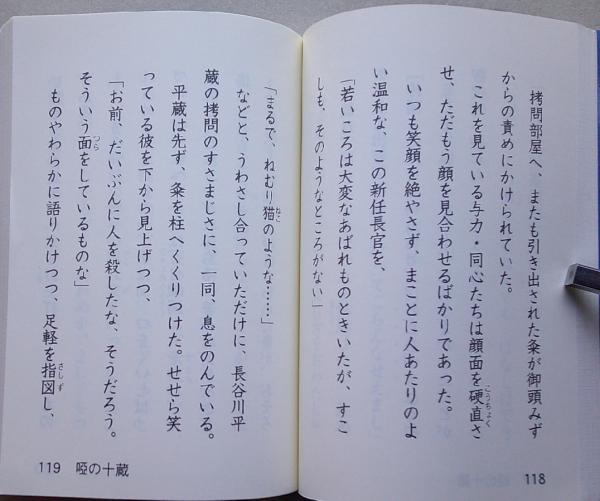 拷問部屋へ、またも引き出された粂が御頭みず
からの責めにかけられていた。
これを見ている与力・同心たちは顔面を硬直さ
こうちょく
せ、ただもう顔を見合わせるばかりであった。
いつも笑顔を絶やさず、まことに人あたりのよ
い温和な、この新任長官を、
「若いころは大変なあばれものときいたが、すこ
しも、そのようなところがない」
118
「まるで、ねむり猫のような……」
ねこ
などと、うわさし合っていただけに、長谷川平
蔵の拷問のすさまじさに、一同、息をのんでいる。
平蔵は先ず、粂を柱へくくりつけた。せせら笑
っている彼を下から見上げつつ、
「お前、だいぶんに人を殺したな、そうだろう。
そういう面をしているものな」
つら
ものやわらかに語りかけつつ、足軽を指図し、
さしず
119 啞の十蔵